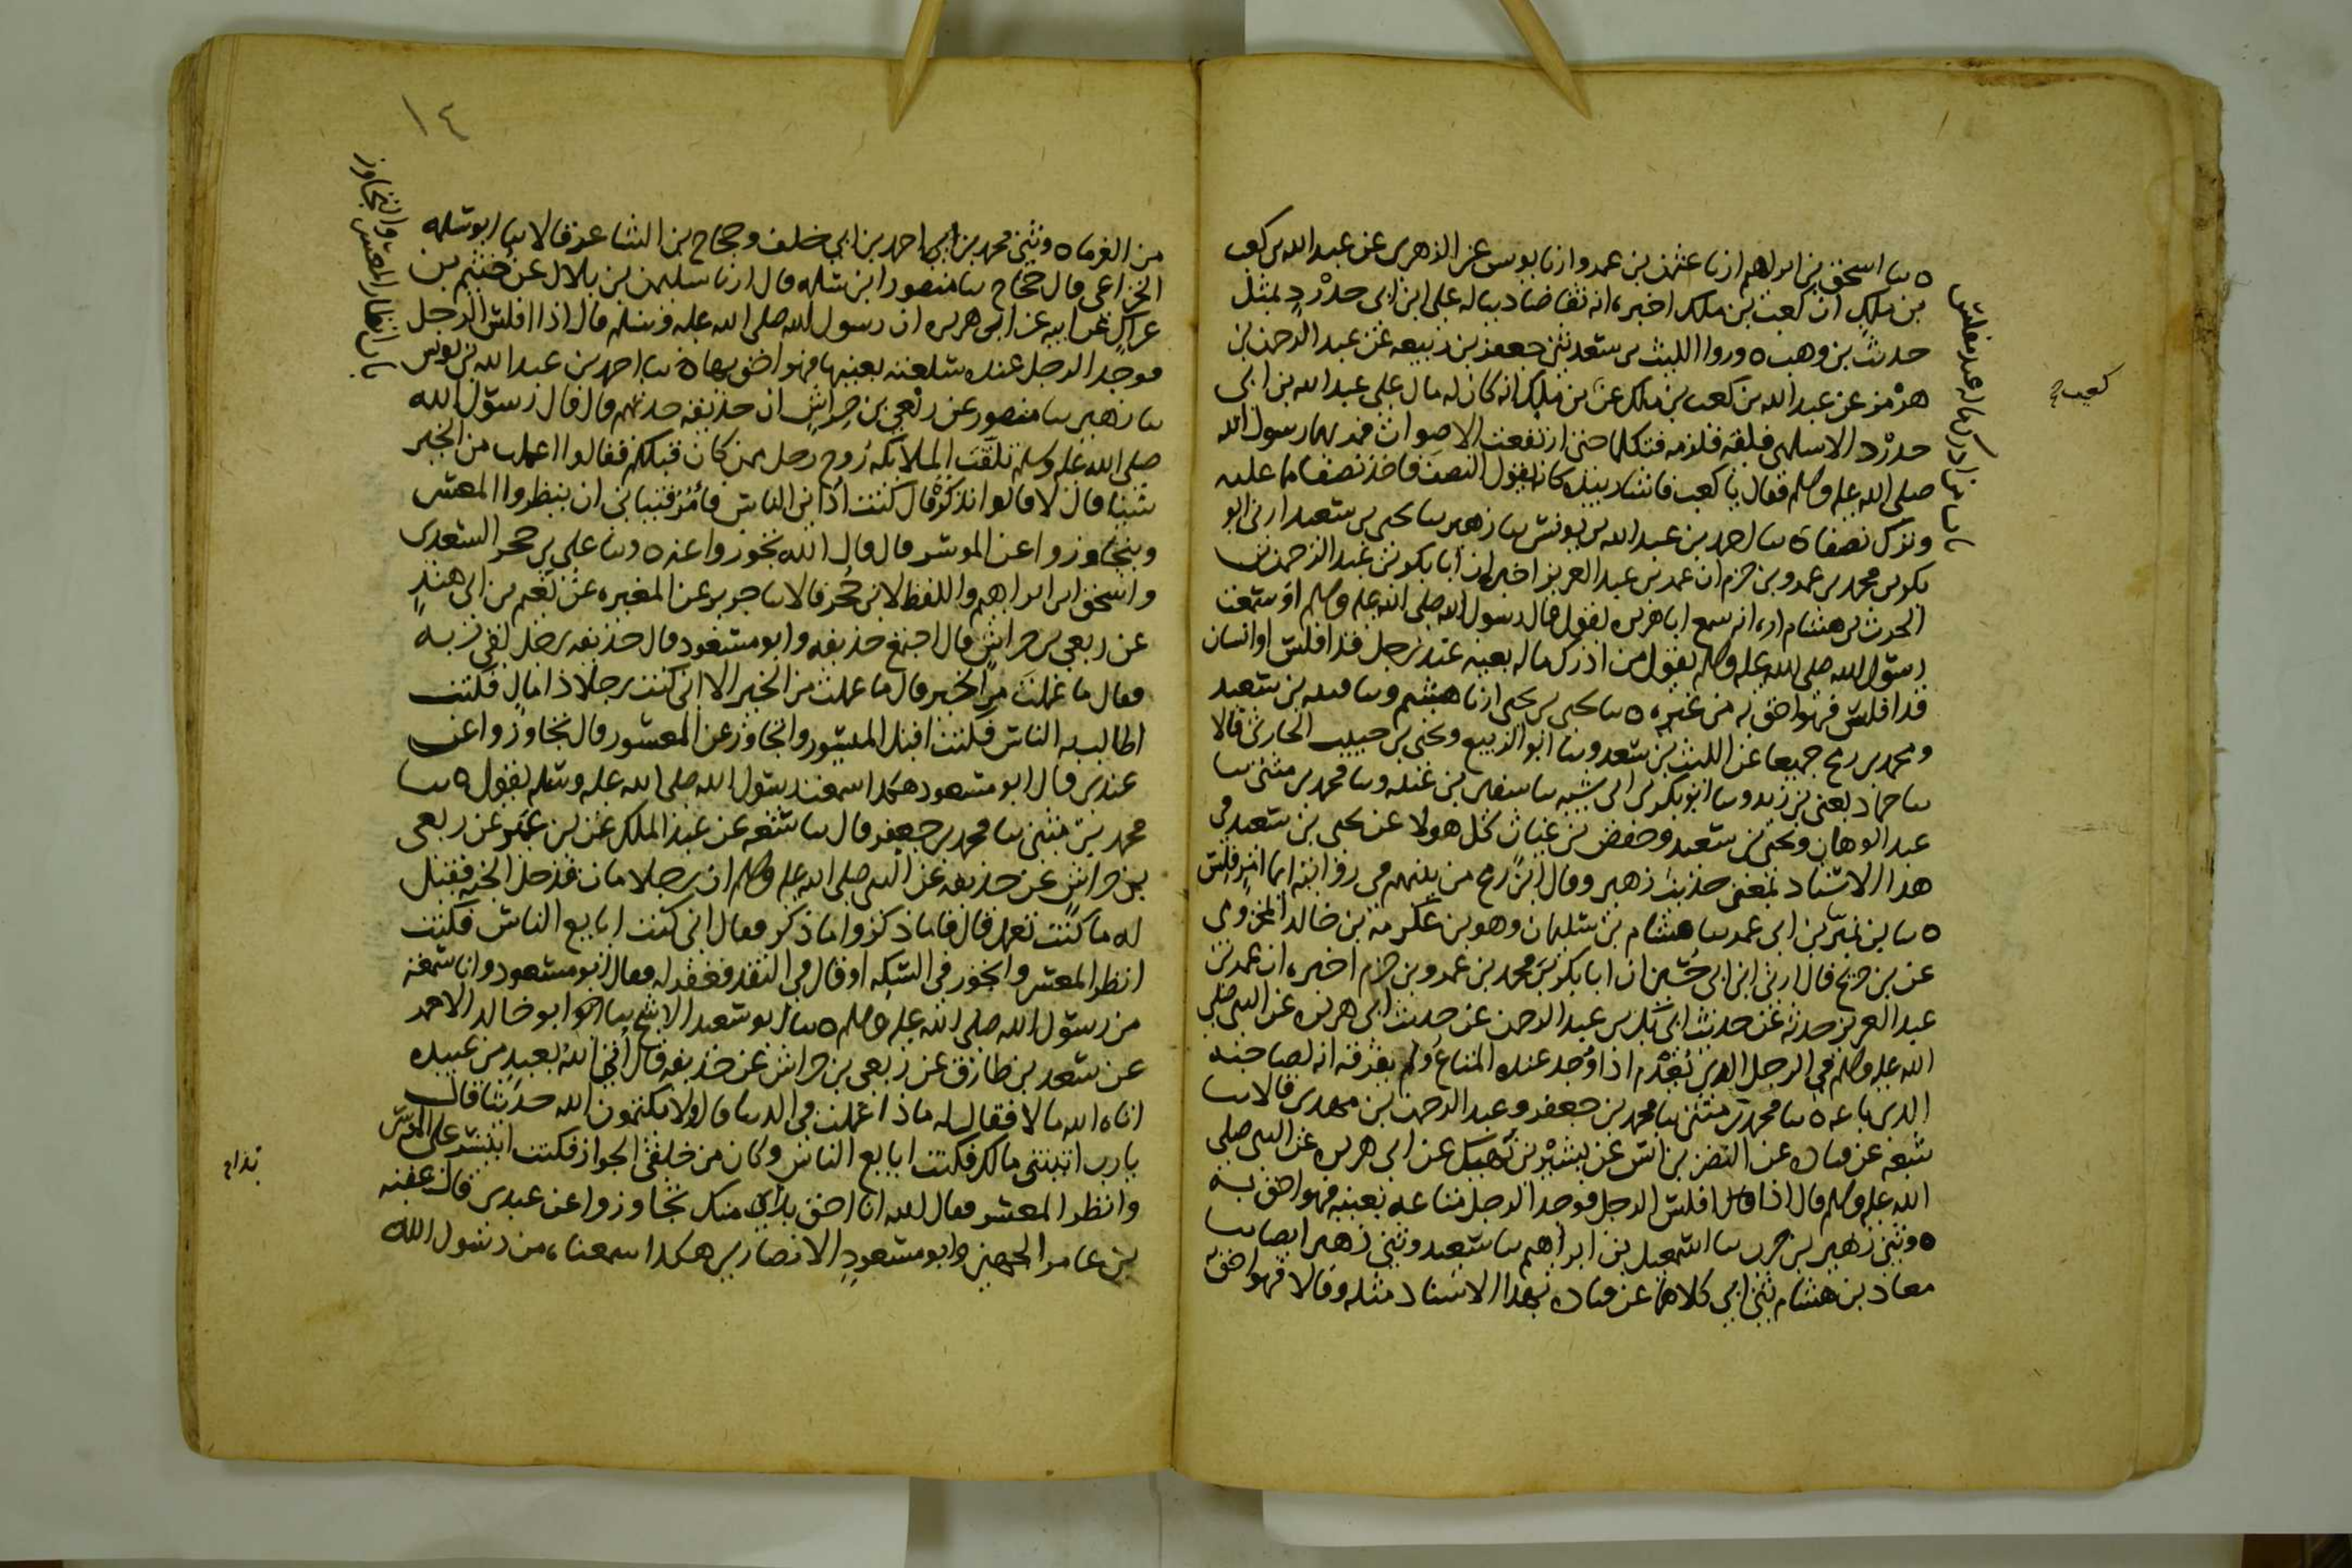 ه ثنا اسحق بن ابراهيم ارنا عثمن بن عمر وارنا يونس عن الزهري عن عبد الله بن كعب
بن ملك ان كعب بن ملك اخبره انه تقاضا دينا له على ابن ابي حدرد بمثل
حديث بن وهب ه وروا الليث بن سعد ثني جعفر بن ربيعه عن عبد الرحمن بن
هرمز عن عبد الله بن كعب بن ملك عن بن ملك انه كان له مال على عبد الله بن ابي
حدرد الاسلمي فلقيه فلزمه فتكلما حتى ارتفعت الاصوات فمر بهما رسول الله
صلى الله عليه وسلم فقال يا كعب فاشار بيده كانه يقول النصف فاخذ نصفا مما عليه
وترك نصفا ه ثنا احمد بن عبد الله بن يونس ثنا زهير ثنا يحيى بن سعيد ارني ابو
بكر بن محمد بن عمرو بن حزم ان عمر بن عبد العزيز اخبره ان ابا بكر بن عبد الرحمن بن
الحرث بن هشام اره انه سمع ابا هريره يقول قال رسول الله صلى الله عليه وسلم او سمعت
رسول الله صلى الله عليه وسلم يقول من ادرك ماله بعينه عند رجل قد افلس او انسان
قد افلس فهو احق به من غيره ه ثنا يحيى بن يحيى ارنا هشيم وثنا قتيبه بن سعيد
ومحمد بن رمح جميعا عن الليث بن سعد وثنا ابو الربيع ويحيى بن حبيب الحارثي قالا
ثنا حماد يعني بن زيد وثنا ابو بكر بن ابي شيبه ثنا سفين بن عيينه وثنا محمد بن مثنى ثنا
عبد الوهاب ويحيى بن سعيد وحفص بن غياث كل هولا عن يحيى بن سعيد في
هذا الاسناد بمعنى حديث زهير وقال ابن رمح من بينهم في روايته ايما امرء فلس
ه ثنا بن ابي عمر ثنا هشام بن سليمان وهو بن عكرمة بن خالد المخزومي
عن بن جريج قال ارني ابن ابي حسين ان ابا بكر بن محمد بن عمرو بن حزم اخبره ان عمر بن
عبد العزيز حدثه عن حديث ابي بكر بن عبد الرحمن عن حديث ابي هريره عن النبي صلى
الله عليه وسلم في الرجل الذي يعدم اذا وجد عنده المتاع ولم يفرقه انه لصاحبه
الذي باعه ه ثنا محمد بن مثنى ثنا محمد بن جعفر وعبد الرحمن بن مهدي قالا ثنا
شعبه عن قتاده عن النضر بن انس عن بشير بن نهيك عن ابي هريره عن النبي صلى
الله عليه وسلم قال اذا افلس الرجل فوجد الرجل متاعه بعينه فهو احق به
ه وثني زهير بن حرب ثنا اسمعيل بن ابراهيم ثنا سعيد وثني زهير ايضا ثنا
معاذ بن هشام ثني ابي كلاهما عن قتاده بهذا الاسناد مثله وقالا فهو احق
باب من ادرك ماله عند مفلس
كعب
١٤
من الغرما ه وثني محمد بن احمد بن ابي خلف وحجاج بن الشاعر قالا ثنا ابو سلمه
الخزاعي قال حجاج ثنا منصور ابن سلمه قال ارنا سليمن بن بلال عن خثيم بن
عراك عن ابيه عن ابي هريره ان رسول الله صلى الله عليه وسلم قال اذا افلس الرجل
فوجد الرجل عنده سلعته بعينها فهو احق بها ه ثنا احمد بن عبد الله بن يونس
ثنا زهير ثنا منصور عن ربعي بن حراش ان حذيفه حدثهم قال قال رسول الله
صلى الله عليه وسلم تلقت الملائكه روح رجل ممن كان قبلكم فقالوا اعملت من الخير
شيئا قال لا قالوا تذكر قال كنت اداين الناس فآمر فتياني ان ينظروا المعسر
ويتجاوزوا عن الموسر قال قال الله تجوزوا عنه ه وثنا علي بن حجر السعدي
واسحق ابن ابراهيم واللفظ لابن حجر قالا ثنا جرير عن المغيره عن نعيم بن ابي هند
عن ربعي بن حراش قال اجتمع حذيفه وابو مسعود قال حذيفه رجل لقي ربه
فقال ما عملت من الخير قال ما عملت من الخير الا اني كنت رجلا ذا مال فكنت
اطالب به الناس فكنت اقبل الميسور واتجاوز عن المعسور قال تجاوزوا عن
عبدي قال ابو مسعود هكذا سمعت رسول الله صلى الله عليه وسلم يقول ه ثنا
محمد بن مثنى ثنا محمد بن جعفر قال ثنا شعبه عن عبد الملك بن عمير عن ربعي
بن حراش عن حذيفه عن النبي صلى الله عليه وسلم ان رجلا مات فدخل الجنه فقيل
له ما كنت تعمل قال فاما ذكر واما ذكر فقال اني كنت ابايع الناس فكنت
انظر المعسر واتجوز في السكه او قال في النقد فغفر له فقال ابو مسعود وانا سمعته
من رسول الله صلى الله عليه وسلم ه ثنا ابو سعيد الاشج ثنا ابو خالد الاحمر
عن سعد بن طارق عن ربعي بن حراش عن حذيفه قال اتي الله بعبد من عبيده
اتاه الله مالا فقال له ماذا عملت في الدنيا قال ولا يكتمون الله حديثا قال
يا رب اتيتني مالك فكنت ابايع الناس وكان من خلقي الجواز فكنت اتيسر على الموسر
وانظر المعسر فقال الله انا احق بذلك منك تجاوزوا عن عبدي قال عقبه
بن عامر الجهني وابو مسعود الانصاري هكذا سمعناه من رسول الله
باب انظار المعسر والتجاوز